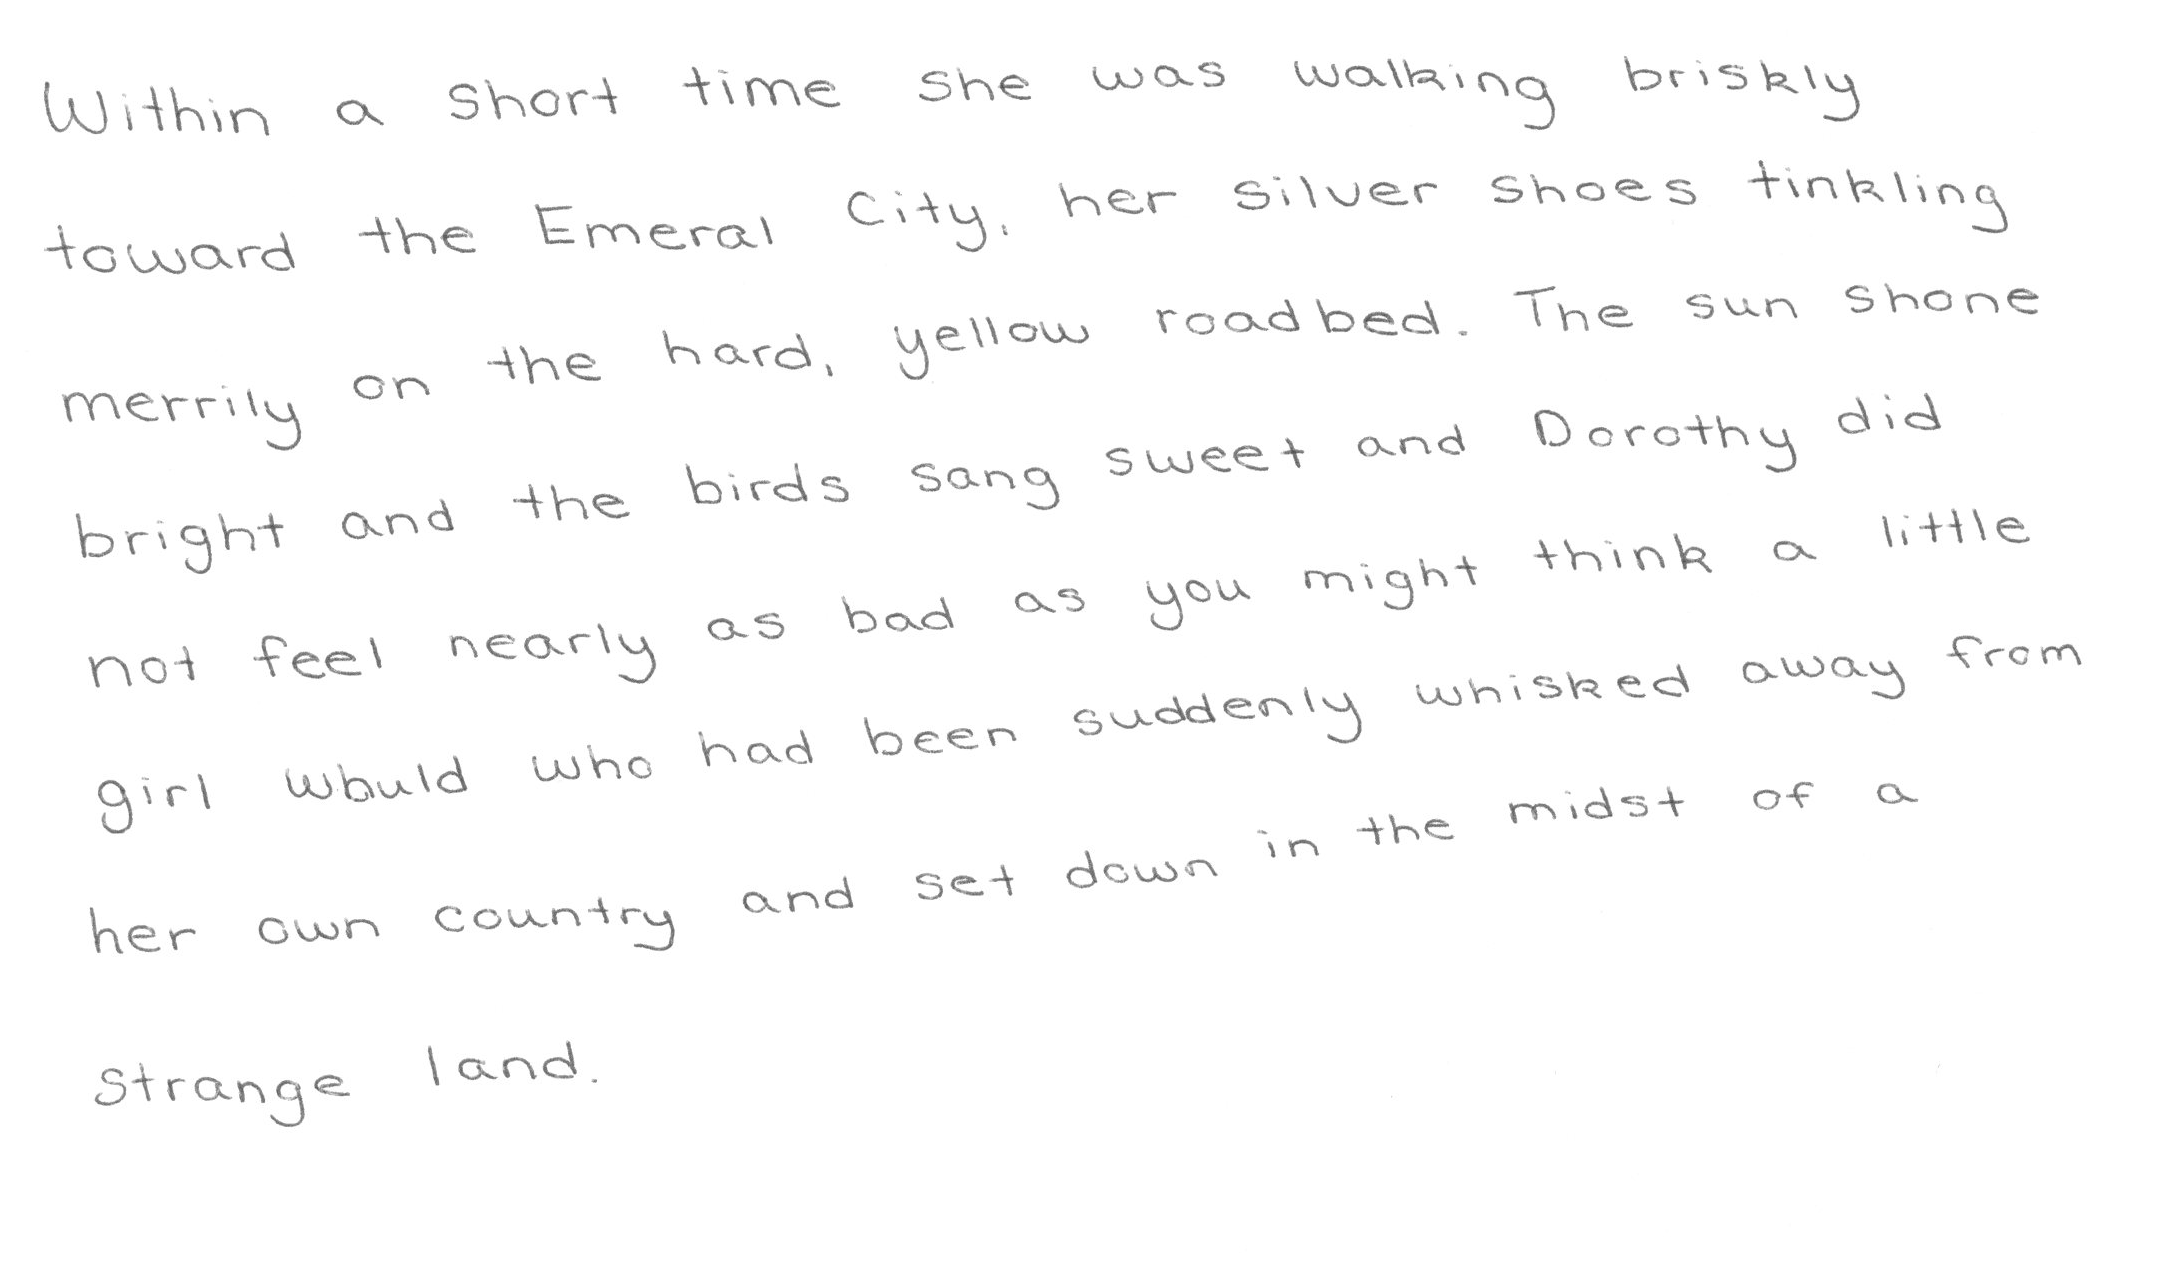 Within a short time she was walking briskly
toward the Emeral City, her silver shoes tinkling
merrily on the hard, yellow roadbed. The sun shone
bright and the birds sang sweet and Dorothy did
not feel nearly as bad as you might think a little
girl would who had been suddenly whisked away from
her own country and set down in the midst of a
strange land.